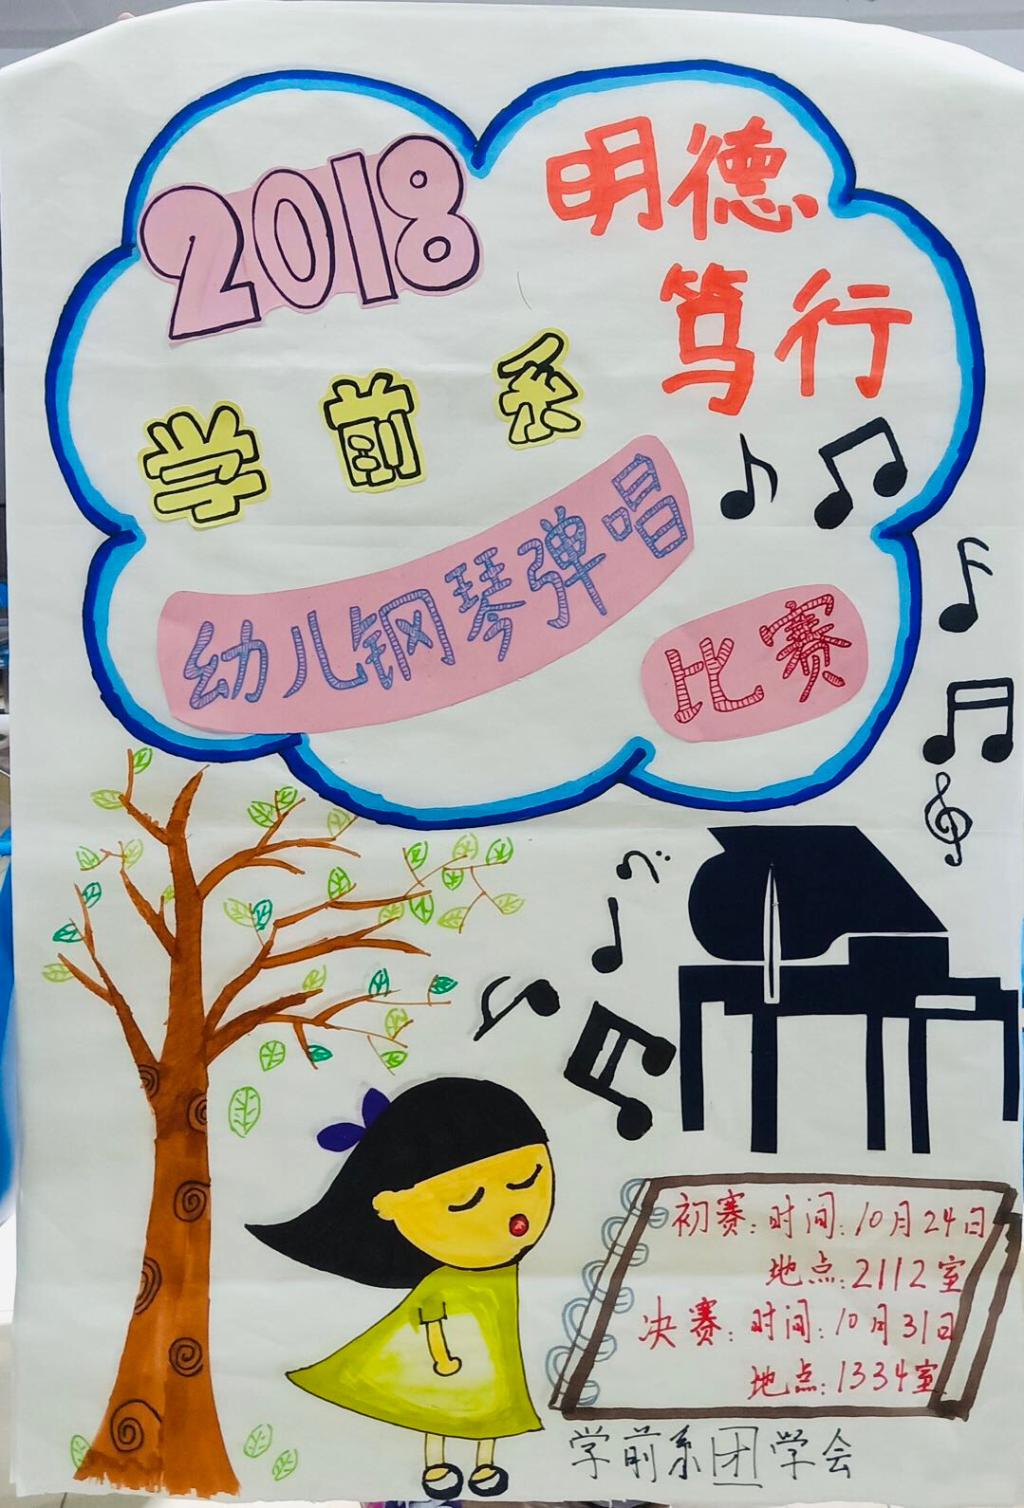 2018
明德
笃行
学前系
幼儿钢琴弹唱
比赛
初赛:时间:10月24日
地点:2112室
决赛:时间:10月31日
地点:1334室
学前系团学会